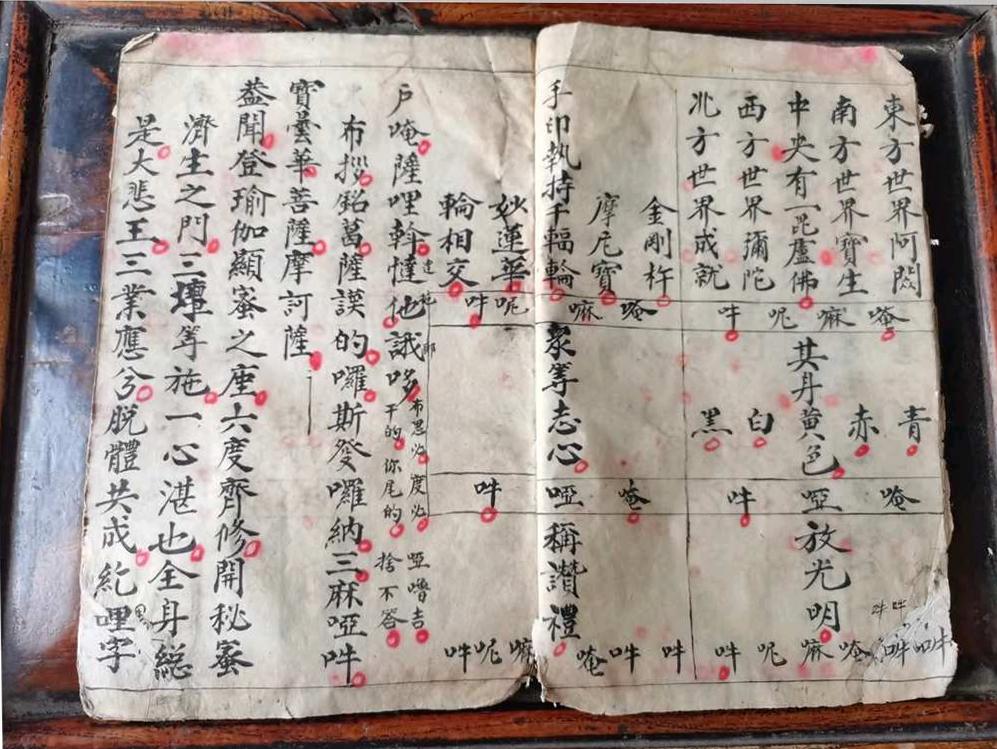 東方世界阿閦
南方世界寶生
中央有一毘盧佛
西方世界彌陀
北方世界成就
唵嘛呢吽
青
赤
其身黃色
白
黑
唵
啞
吽
放光明
吽吽
吽吽唵嘛呢吽
金剛杵
摩尼寶
手印執持千輻輪
妙蓮華
輪相交
唵嘛呢吽
眾等志心
唵
啞
吽
稱讚禮
吽吽唵嘛呢吽
戶唵薩哩斡憶他誐哆
達
布思必度必
干的你尾的
啞嚕吉
捨不答
布捴銘葛薩謨的囉斯發囉納三麻啞吽
寶曇華菩薩摩訶薩
葢聞登瑜伽顯蜜之座六度齊修開秘蜜
濟生之門三壇等施一心湛也全身総
是大悲王三業應兮脫體共成紇哩字